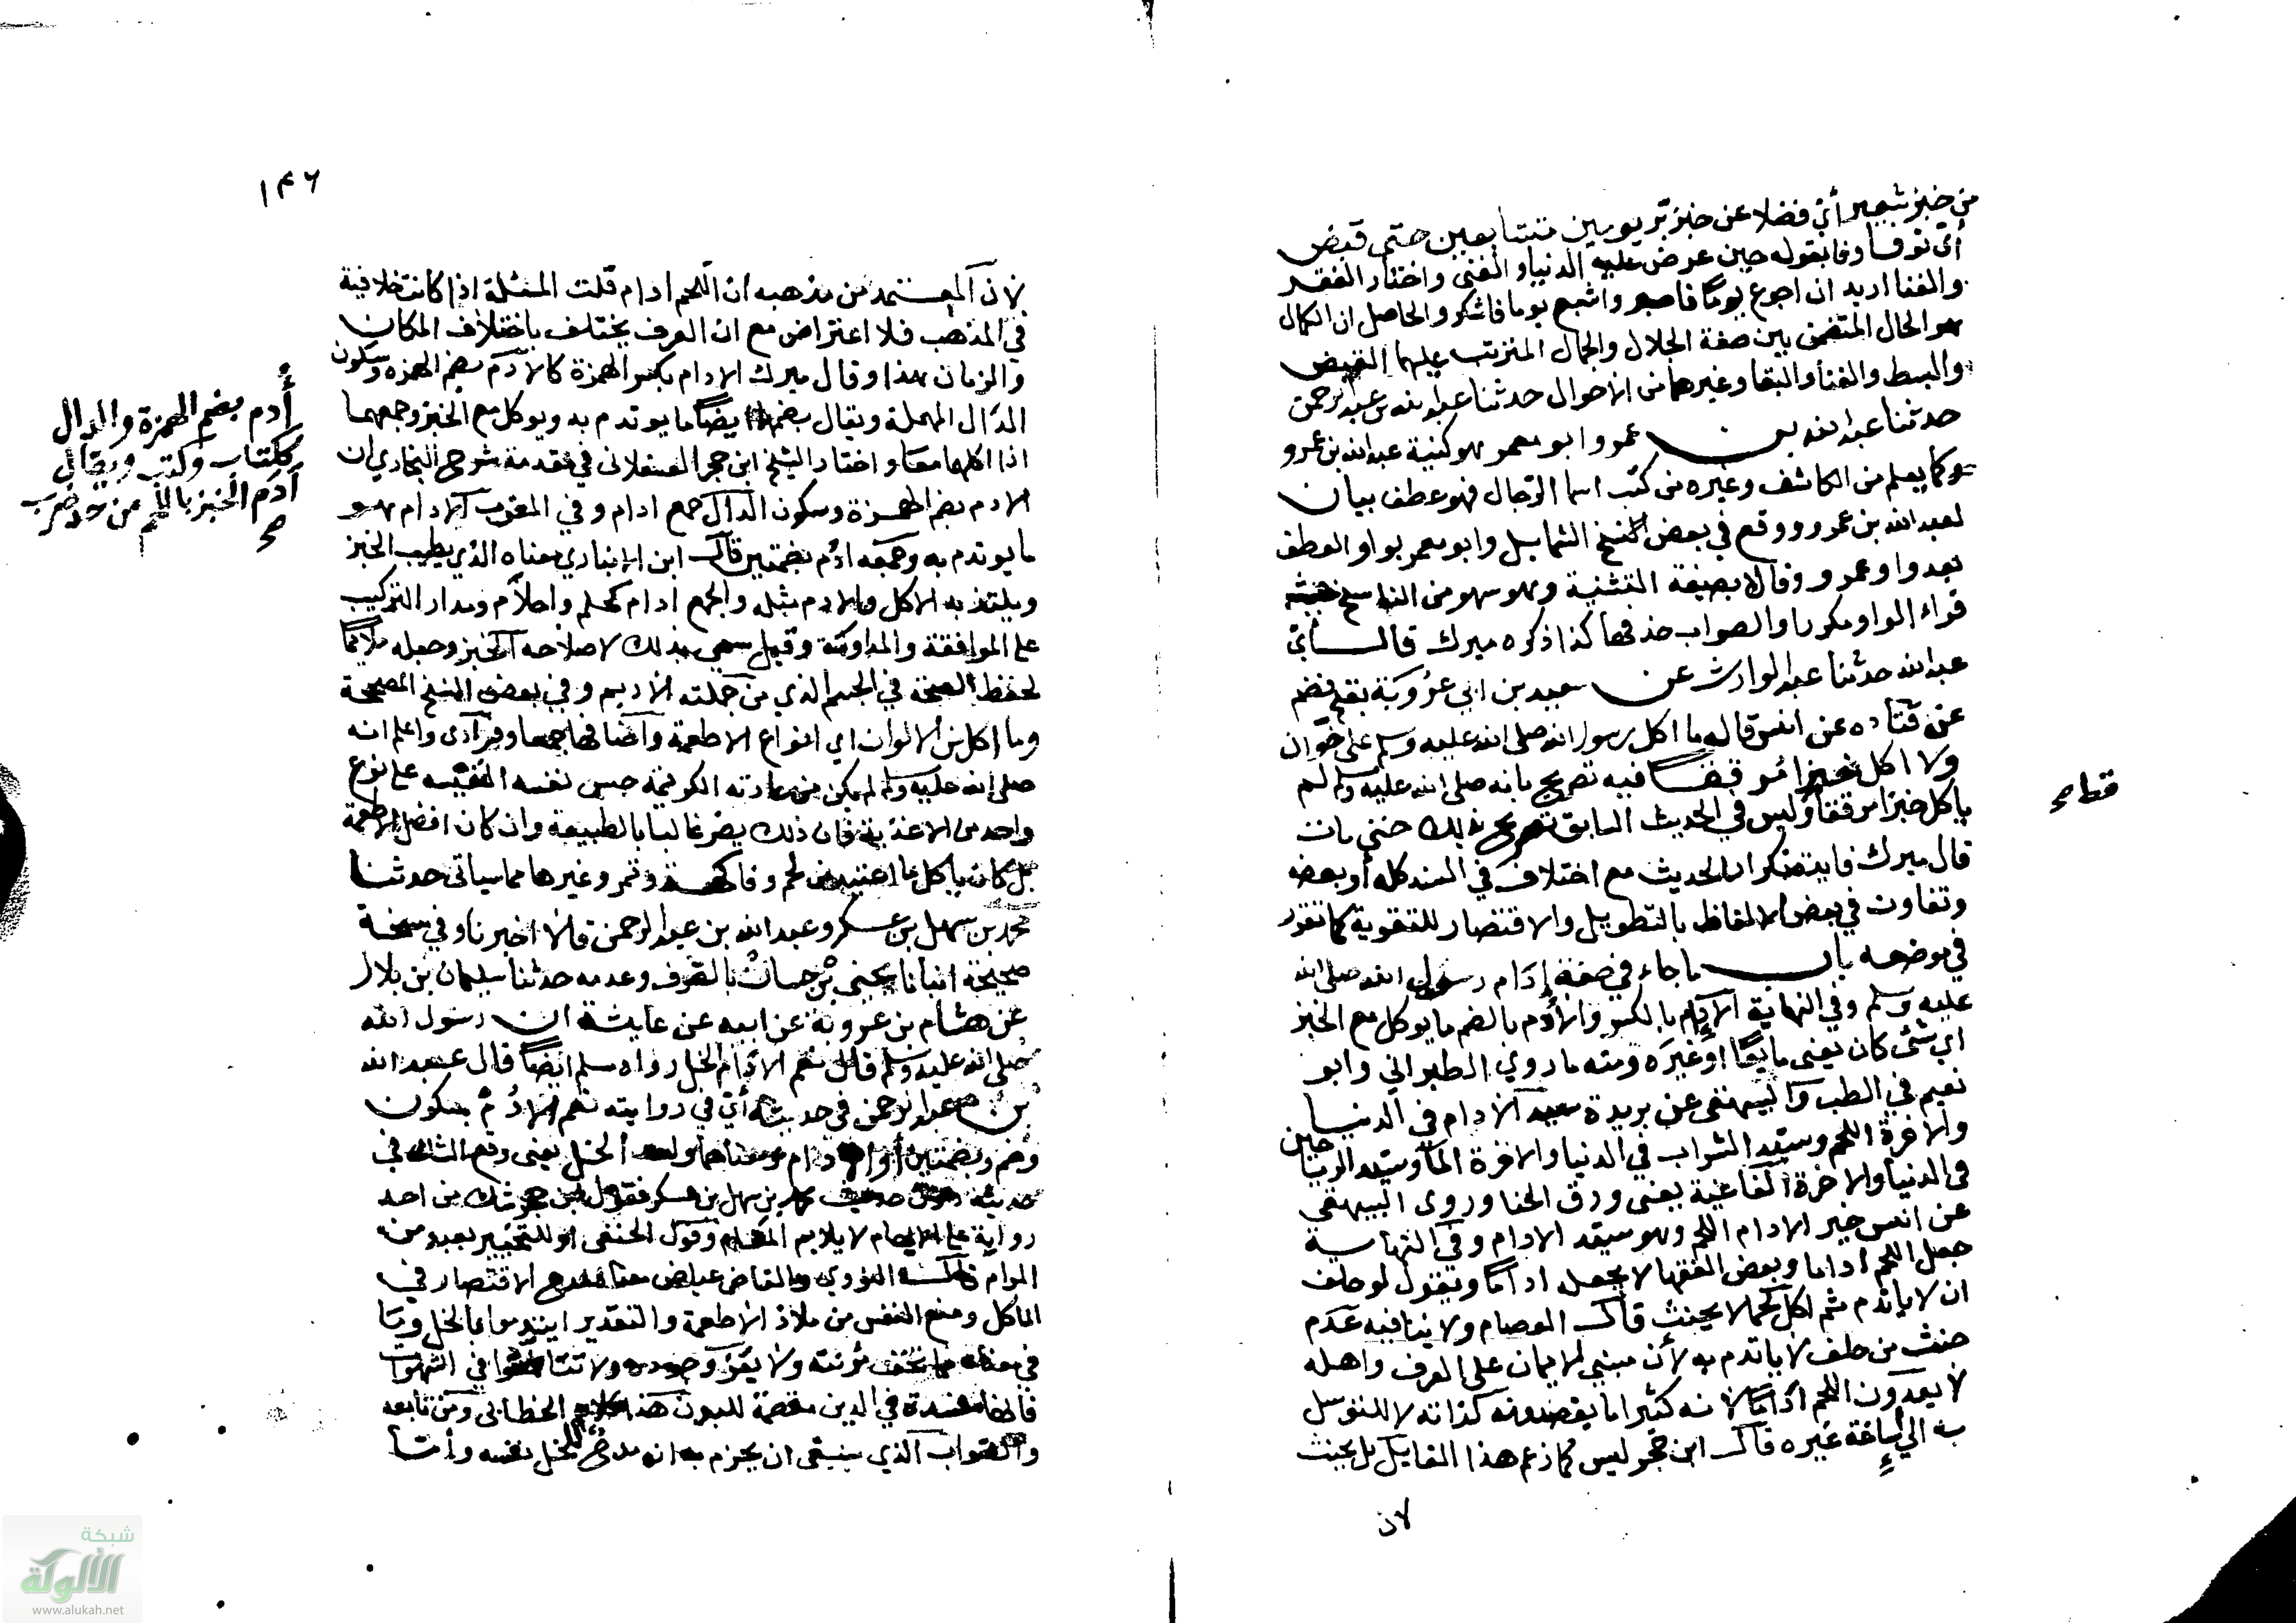 من خبز شعير أي فضلا عن خبز بر يومين متتابعين حتى قبض
أي توفى وفا بقوله حين عرض عليه الدنيا والغنى واختار الفقر
والفنا اريد ان اجوع يوما فاصبر واشبع يوما فاشكر والحاصل ان الكمال
هو الحال المتضمن بين صفة الجلال والجمال المترتب عليهما القبض
والبسط والفنا والبقا وغيرها من الاحوال حدثنا عبد الله بن عبد الرحمن
حدثنا عبد الله بن عمرو ابو معمر هو كنية عبد الله بن عمرو
كما يعلم من الكاشف وغيره من كتب اسما الرجال فهو عطف بيان
لعبد الله بن عمرو ووقع في بعض نسخ الشمايل وابو معمر بواو العطف
بعد واو عمرو وقالا بصيغة التثنية وهو سهو من الناسخ حيث
قراء الواو مكررا والصواب حذفها كذا ذكره ميرك قال أي
عبد الله حدثنا عبد الوارث عن سعيد بن ابي عروبة بفتح فضم
عن قتاده عن انس قال ما اكل رسول الله صلى الله عليه وسلم على خوان
ولا اكل خبزا مرققا فيه تصريح بانه صلى الله عليه وسلم لم
ياكل خبزا مرققا وليس في الحديث السابق تصريح بذلك حتى مات
قط صح
قال ميرك فايدة تكرار الحديث مع اختلاف في السند كله أو بعضه
وتفاوت في بعض الالفاظ بالتطويل والاقتصار للتقوية كما تقرر
في موضعه باب ما جاء في صفة إدام رسول الله صلى الله
عليه وسلم وفي النهاية الادام بالكسر والأدم بالضم ما يوكل مع الخبز
اي شئ كان يعني مايعا او غيره ومنه ما روي الطبراني وابو
نعيم في الطب والبيهقى عن بريدة سيد الادام في الدنيا
والاخرة اللحم وسيد الشراب في الدنيا والاخرة الماء وسيد الرياحين
في الدنيا والاخرة الفاغية يعني ورق الحنا وروى البيهقي
عن انس خير الادام اللحم وهو سيد الادام وفي النهاية
جعل اللحم اداما وبعض الفقها لا يجعله اداما ويقول لو حلف
ان لا ياتدم ثم اكل لحما لا يحنث قال العصام ولا ينافيه عدم
حنث من حلف لا ياتدم به لأن مبنى الايمان على العرف واهله
لا يعدون اللحم اداما لانه كثيرا ما يقصدونه كذاته لا للتوسل
به الى إساغة غيره قال ابن حجر ليس كما زعم هذا القايل بل يحنث
لان
١٤٦
لان المعتمد من مذهبه ان اللحم ادام قلت المسئلة اذا كانت خلافية
في المذهب فلا اعتراض مع ان العرف يختلف باختلاف المكان
والزمان هذا وقال ميرك الادام بكسر الهمزة كالادم بضم الهمزه وسكون
الدال المهملة ويقال بضمها ايضا ما يوتدم به ويوكل مع الخبز وجمعهما
أُدم بضم الهمزة والدال
ككتاب وكتب ويقال
أدم الخبز باللحم من حد ضرب
صح
اذا اكلهما معا واختار الشيخ ابن حجر العسقلاني في مقدمة شرح البخاري ان
الادم بضم الهمزة وسكون الدال جمع ادام وفي المغرب الادام هو
ما يوتدم به وجمعه ادُم بضمتين قال ابن الانباري معناه الذي يطيب الخبز
ويلتذ به الاكل والادم مثله والجمع ادام كحلم واحلام ومدار التركيب
على الموافقة والمداومة وقيل سمي بذلك لاصلاحه الخبز وجعله ملايما
لحفظ الصحة في الجسم الذي من جملته الاديم وفي بعض النسخ المصححة
وما اكل من الالوان اي انواع الاطعمة واصنافها جمعا وفرادى واعلم انه
صلى الله عليه وسلم لم يكن من عادته الكريمة حبس نفسه النفيسه على نوع
واحد من الاغذية فان ذلك يضر غالبا بالطبيعة وان كان افضل الاطعمة
بل كان ياكل ما اعتيد من لحم وفاكهة وتمر وغيرها مما سياتى حدثنا
محمد بن سهل بن عسكر وعبد الله بن عبد الرحمن قالا اخبرنا وفي نسخة
صحيحة انبانا يحيى بن حسان بالصرف وعدمه حدثنا سليمان بن بلال
عن هشام بن عروة عن ابيه عن عايشة ان رسول الله
صلى الله عليه وسلم قال نعم الادام الخل رواه مسلم ايضا قال عبد الله
بن عبد الرحمن في حديثه أي في روايته نعم الادم بسكون
وضم وبضمتين أو الادام ومعناهما واحد الخل يعني وقع الشك في
حديثه دون حديث محمد بن سهل بن عسكر فقول ابن حجر شك من احد
رواية على الابهام لا يلايم المقام وقول الحنفى او للتخيير بعيد من
المرام قال النووي والقاضي عياض معناه مدح الاقتصار في
الماكل ومنع النفس من ملاذ الاطعمة والتقدير ايتدموا بالخل وما
في معناه مما تخف مؤنته ولا يعز وجوده ولا تتانقوا في الشهوات
فانها مفسدة في الدين مسقمة للبدن هذا كلام الخطابى ومن تابعه
والصواب الذي ينبغى ان يجزم به انه مدح للخل نفسه وأما
شبكة
الألوكة
www.alukah.net